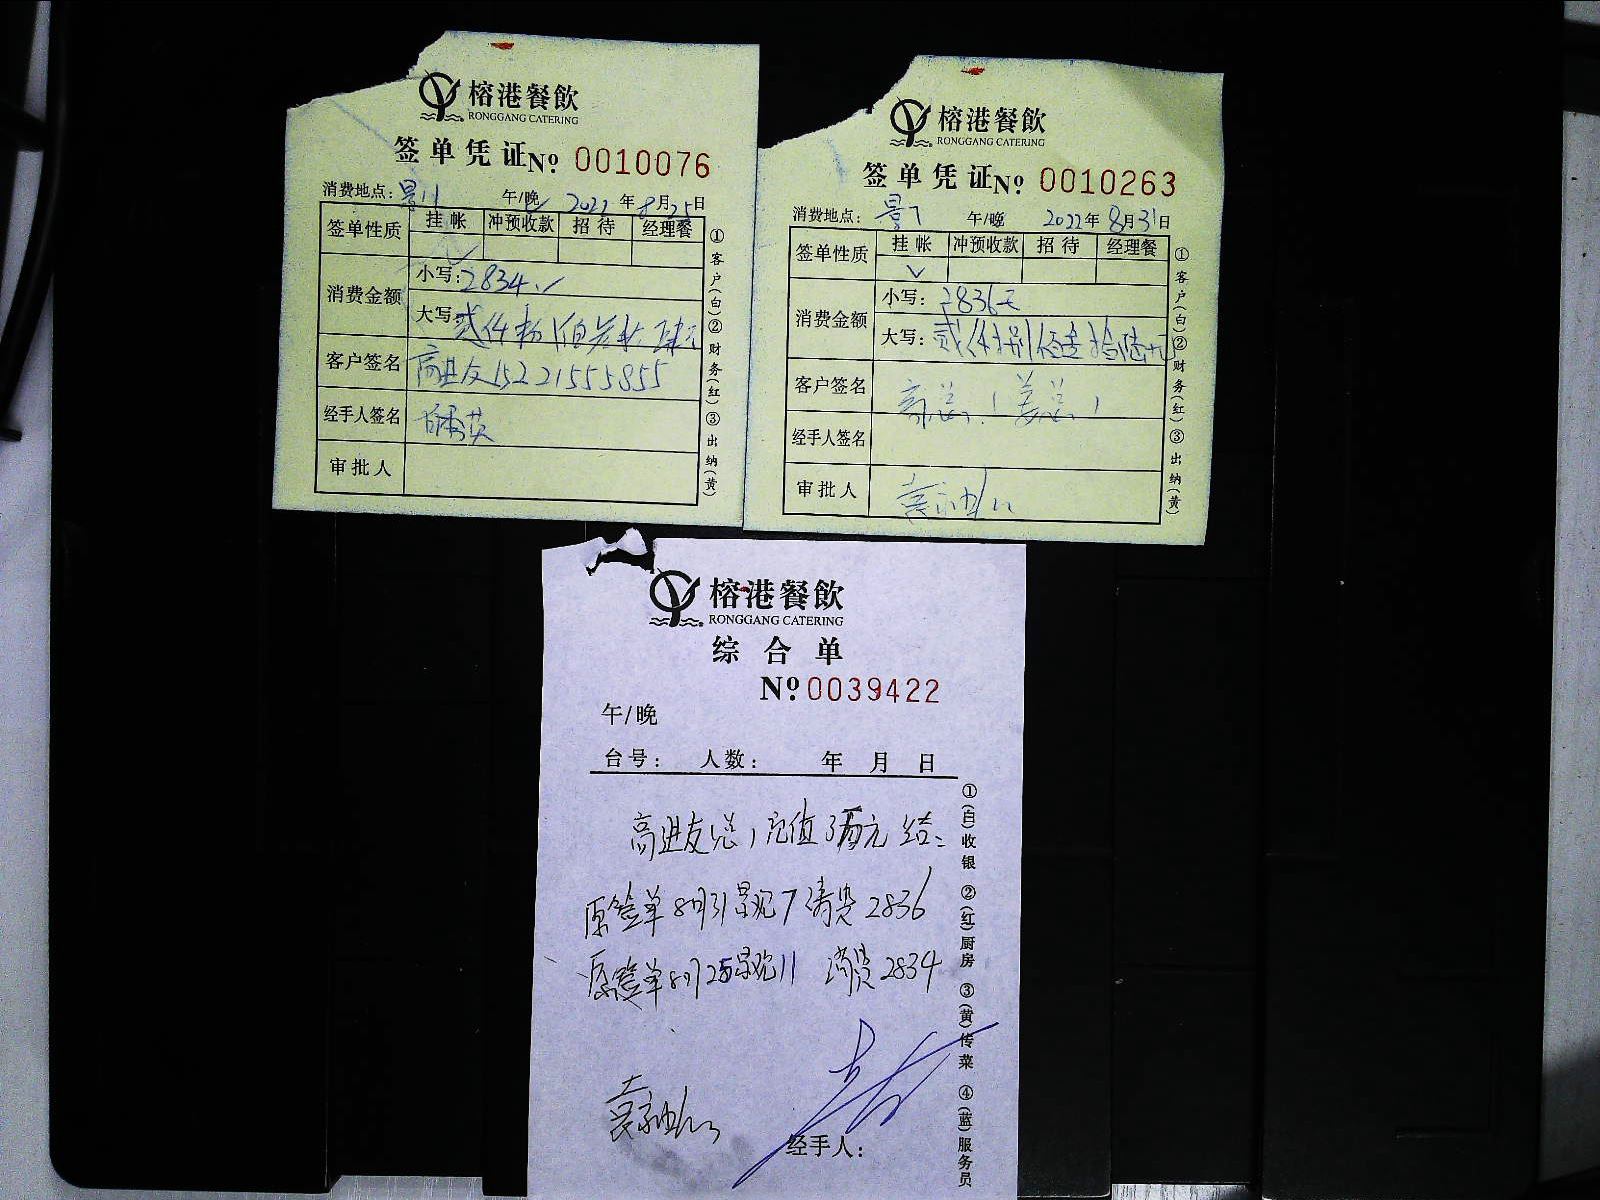 榕港餐飲
RONGGANG CATERING
签单凭证 № 0010076
消费地点：景11 午/晚 2022年8月25日
签单性质 挂帐 冲预收款 招待 经理餐
消费金额
小写：2834.
大写：贰仟捌佰叁拾肆元
客户签名 高进友15221555855
经手人签名
审批人
①客户(白)②财务(红)③出纳(黄)
榕港餐飲
RONGGANG CATERING
签单凭证 № 0010263
消费地点：景7 午/晚 2022年8月31日
签单性质 挂帐 冲预收款 招待 经理餐
消费金额
小写：2836元
大写：贰仟捌佰叁拾陆元
客户签名 高总（姜总）
经手人签名
审批人
①客户(白)②财务(红)③出纳(黄)
榕港餐飲
RONGGANG CATERING
综合单
№ 0039422
午/晚
台号： 人数： 年 月 日
高进友总，充值3万元 结：
原签单8月31景观7消费2836
原签单8月25景观11 消费2834
经手人：
①(白)收银 ②(红)厨房 ③(黄)传菜 ④(蓝)服务员